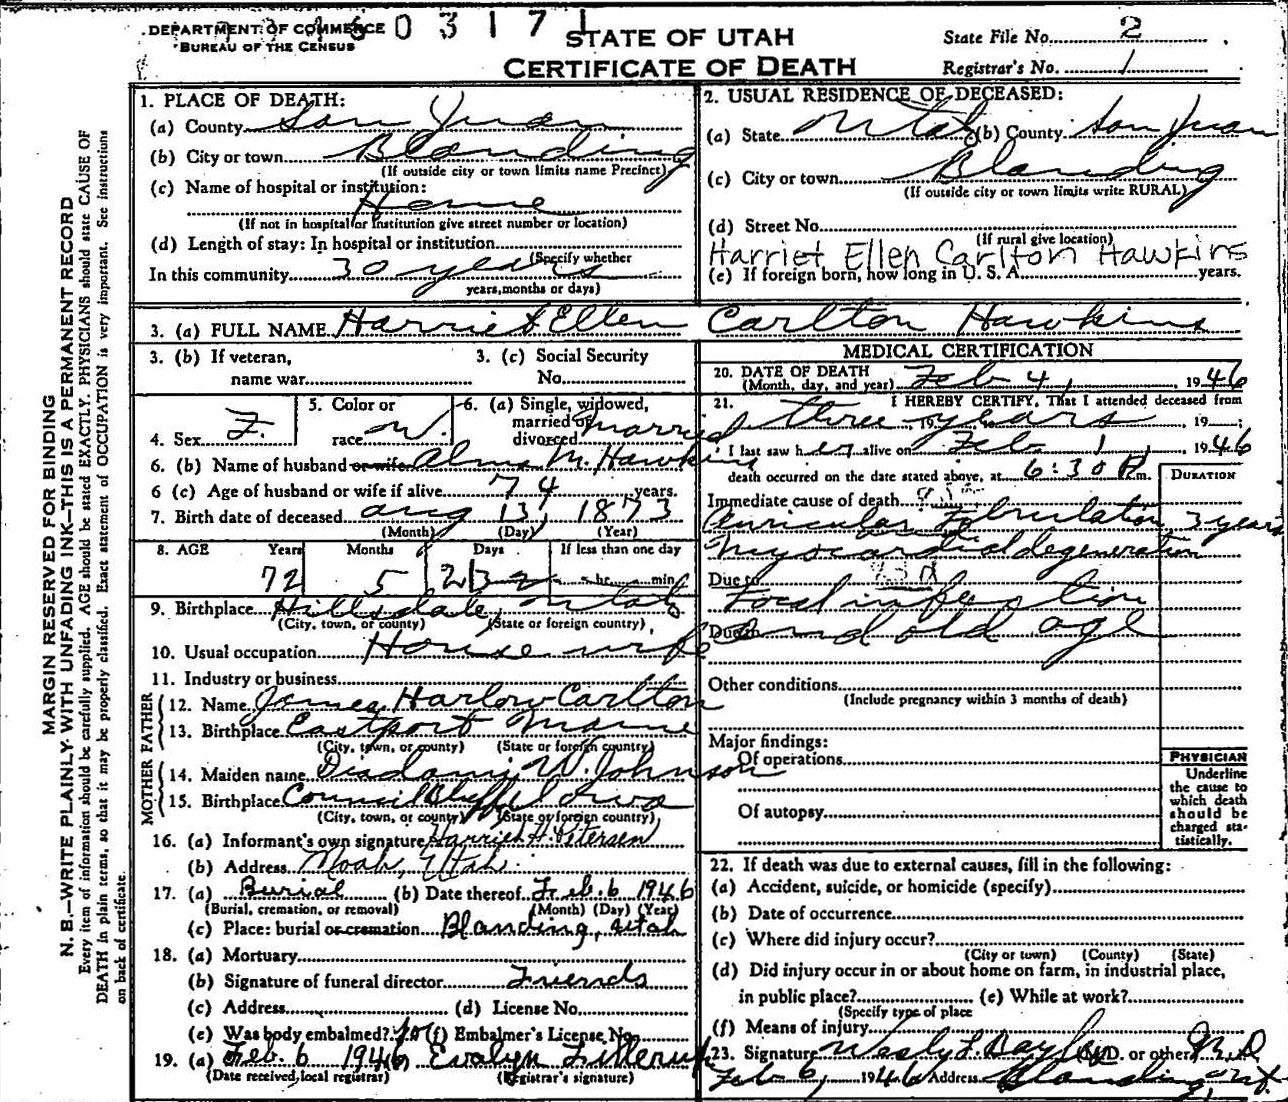 DEPARTMENT OF COMMERCE
BUREAU OF THE CENSUS
0 3 1 7 1
STATE OF UTAH
CERTIFICATE OF DEATH
State File No. 2
Registrar's No. 1
MARGIN RESERVED FOR BINDING
N. B.—WRITE PLAINLY WITH UNFADING INK—THIS IS A PERMANENT RECORD
Every item of information should be carefully supplied. AGE should be stated EXACTLY. PHYSICIANS should state CAUSE OF
DEATH in plain terms, so that it may be properly classified. Exact statement of OCCUPATION is very important. See instructions
on back of certificate.
1. PLACE OF DEATH:
(a) County San Juan
(b) City or town Blanding
(If outside city or town limits name Precinct)
(c) Name of hospital or institution:
Home
(If not in hospital or institution give street number or location)
(d) Length of stay: In hospital or institution
(Specify whether
In this community 30 years
years, months or days)
2. USUAL RESIDENCE OF DECEASED:
(a) State Utah (b) County San Juan
(c) City or town Blanding
(If outside city or town limits write RURAL)
(d) Street No.
(If rural give location)
Harriet Ellen Carlton Hawkins
(e) If foreign born, how long in U. S. A. years.
3. (a) FULL NAME Harriet Ellen Carlton Hawkins
3. (b) If veteran,
name war
3. (c) Social Security
No.
4. Sex F.
5. Color or
race W.
6. (a) Single, widowed,
married or
divorced married
6. (b) Name of husband or wife Alma M. Hawkins
6 (c) Age of husband or wife if alive 74 years.
7. Birth date of deceased Aug 13, 1873
(Month) (Day) (Year)
8. AGE Years Months Days If less than one day
72 5 23 hr. min.
9. Birthplace Hillsdale, Utah
(City, town, or county) (State or foreign country)
10. Usual occupation House wife
11. Industry or business
FATHER
12. Name James Harlow Carlton
13. Birthplace Eastport Maine
(City, town, or county) (State or foreign country)
MOTHER
14. Maiden name W. Johnson
15. Birthplace Council Bluffs Iowa
(City, town, or county) (State or foreign country)
16. (a) Informant's own signature Harriet H. Petersen
(b) Address Moab, Utah
17. (a) Burial (b) Date thereof Feb. 6 1946
(Burial, cremation, or removal) (Month) (Day) (Year)
(c) Place: burial or cremation Blanding, Utah
18. (a) Mortuary
(b) Signature of funeral director Friends
(c) Address (d) License No.
(e) Was body embalmed? No (f) Embalmer's License No.
19. (a) Feb. 6 1946 Evalyn
(Date received, local registrar) (Registrar's signature)
MEDICAL CERTIFICATION
20. DATE OF DEATH
(Month, day, and year) Feb 4, 1946
21. I HEREBY CERTIFY, That I attended deceased from
three years 19 to , 19 ;
I last saw her alive on Feb. 1, 1946
death occurred on the date stated above, at 6:30 P.m.
DURATION
Immediate cause of death
Auricular Fibrulation 3 years
myocardial degeneration
Due to
Focal infection
Due to and old age
Other conditions
(Include pregnancy within 3 months of death)
Major findings:
Of operations
Of autopsy
PHYSICIAN
Underline
the cause to
which death
should be
charged sta-
tistically.
22. If death was due to external causes, fill in the following:
(a) Accident, suicide, or homicide (specify)
(b) Date of occurrence
(c) Where did injury occur?
(City or town) (County) (State)
(d) Did injury occur in or about home on farm, in industrial place,
in public place? (e) While at work?
(Specify type of place
(f) Means of injury
23. Signature Wesly F. Bayles (M.D. or other) M.D.
Feb 6, 1946 Address Blanding Ut.